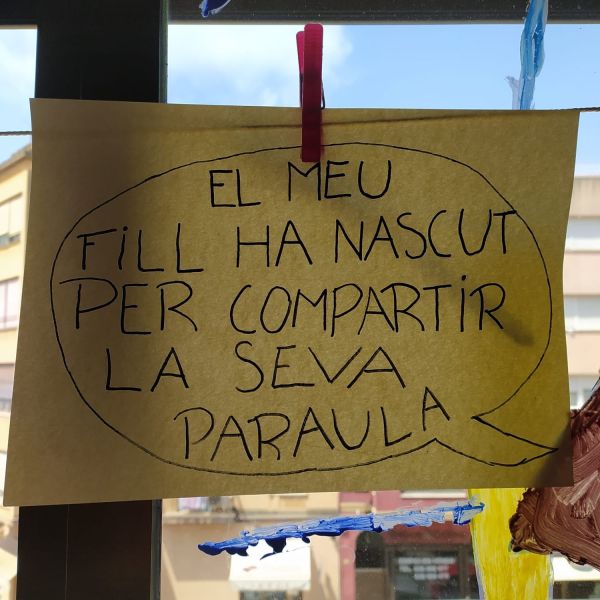 EL MEU
FiLL HA NASCUT
PER COMPARTiR
LA SEVA
PARAULA